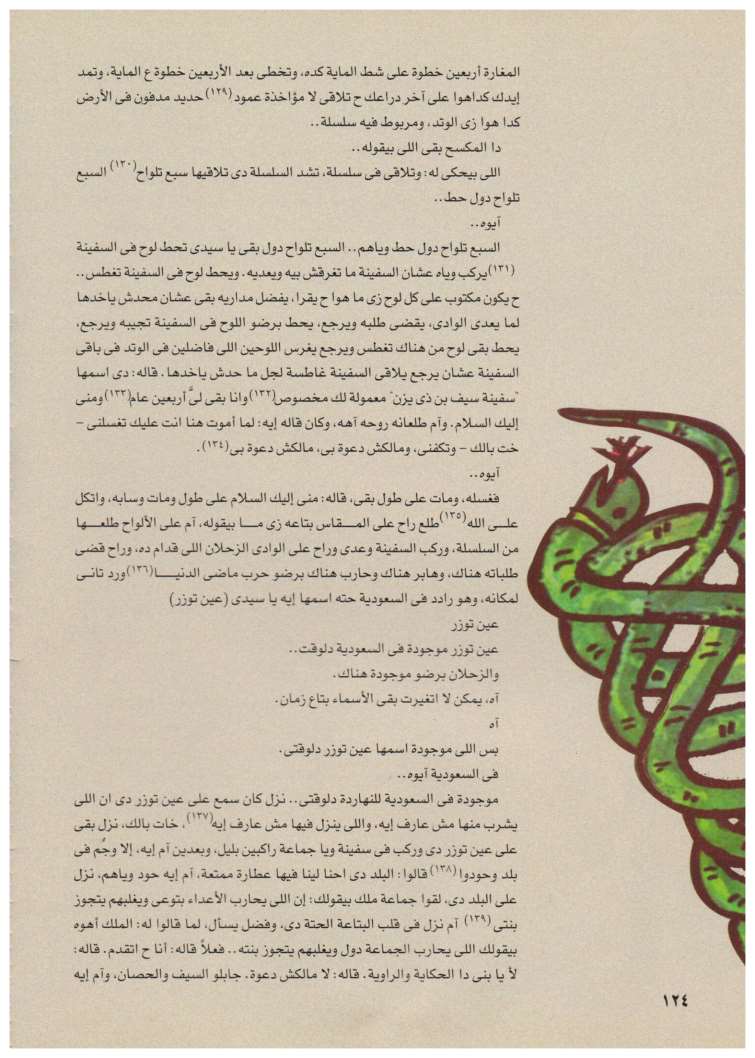 المغارة أربعين خطوة على شط الماية كده، وتخطى بعد الأربعين خطوة ع الماية، وتمد
إيدك كداهوا على آخر دراعك ح تلاقى لا مؤاخذة عمود(١٢٩) حديد مدفون فى الأرض
كدا هوا زى الوتد، ومربوط فيه سلسلة..
دا المكسح بقى اللى بيقوله..
اللى بيحكى له: وتلاقى فى سلسلة، تشد السلسلة دى تلاقيها سبع تلواح(١٣٠) السبع
تلواح دول حط..
آيوه..
السبع تلواح دول حط وياهم.. السبع تلواح دول بقى يا سيدى تحط لوح فى السفينة
(١٣١)يركب وياه عشان السفينة ما تغرقش بيه ويعديه. ويحط لوح فى السفينة تغطس..
ح يكون مكتوب على كل لوح زى ما هوا ح يقرا، يفضل مداريه بقى عشان محدش ياخدها
لما يعدى الوادى، يقضى طلبه ويرجع، يحط برضو اللوح فى السفينة تجيبه ويرجع،
يحط بقى لوح من هناك تغطس ويرجع يغرس اللوحين اللى فاضلين فى الوتد فى باقى
السفينة عشان يرجع يلاقى السفينة غاطسة لجل ما حدش ياخدها. قاله: دى اسمها
"سفينة سيف بن ذى يزن" معمولة لك مخصوص(١٣٢)وانا بقى لىَّ أربعين عام(١٣٣)ومنى
إليك السلام. وآم طلعانه روحه آهه، وكان قاله إيه: لما أموت هنا انت عليك تغسلنى –
خت بالك – وتكفنى، ومالكش دعوة بى، مالكش دعوة بى(١٣٤).
آيوه..
فغسله، ومات على طول بقى، قاله: منى إليك السلام على طول ومات وسابه، واتكل
علـى الله(١٣٥)طلع راح على المـقاس بتاعه زى مـا بيقوله، آم على الألواح طلعـها
من السلسلة، وركب السفينة وعدى وراح على الوادى الزحلان اللى قدام ده، وراح قضى
طلباته هناك، وهابر هناك وحارب هناك برضو حرب ماضى الدنيـا(١٣٦)ورد تانـى
لمكانه، وهو رادد فى السعودية حته اسمها إيه يا سيدى (عين توزر)
عين توزر
عين توزر موجودة فى السعودية دلوقت..
والزحلان برضو موجودة هناك.
آه، يمكن لا اتغيرت بقى الأسماء بتاع زمان.
آه
بس اللى موجودة اسمها عين توزر دلوقتى.
فى السعودية آيوه..
موجودة فى السعودية للنهاردة دلوقتى.. نزل كان سمع على عين توزر دى ان اللى
يشرب منها مش عارف إيه، واللى ينزل فيها مش عارف إيه(١٣٧)، خات بالك، نزل بقى
على عين توزر دى وركب فى سفينة ويا جماعة راكبين بليل، وبعدين آم إيه، إلا وجُم فى
بلد وحودوا(١٣٨) قالوا: البلد دى احنا لينا فيها عطارة ممتعة، آم إيه حود وياهم، نزل
على البلد دى، لقوا جماعة ملك بيقولك: إن اللى يحارب الأعداء بتوعى ويغلبهم يتجوز
بنتى(١٣٩) آم نزل فى قلب البتاعة الحتة دى، وفضل يسأل، لما قالوا له: الملك أهوه
بيقولك اللى يحارب الجماعة دول ويغلبهم يتجوز بنته.. فعلاً قاله: أنا ح اتقدم. قاله:
لأ يا بنى دا الحكاية والراوية. قاله: لا مالكش دعوة. جابلو السيف والحصان، وآم إيه
١٢٤